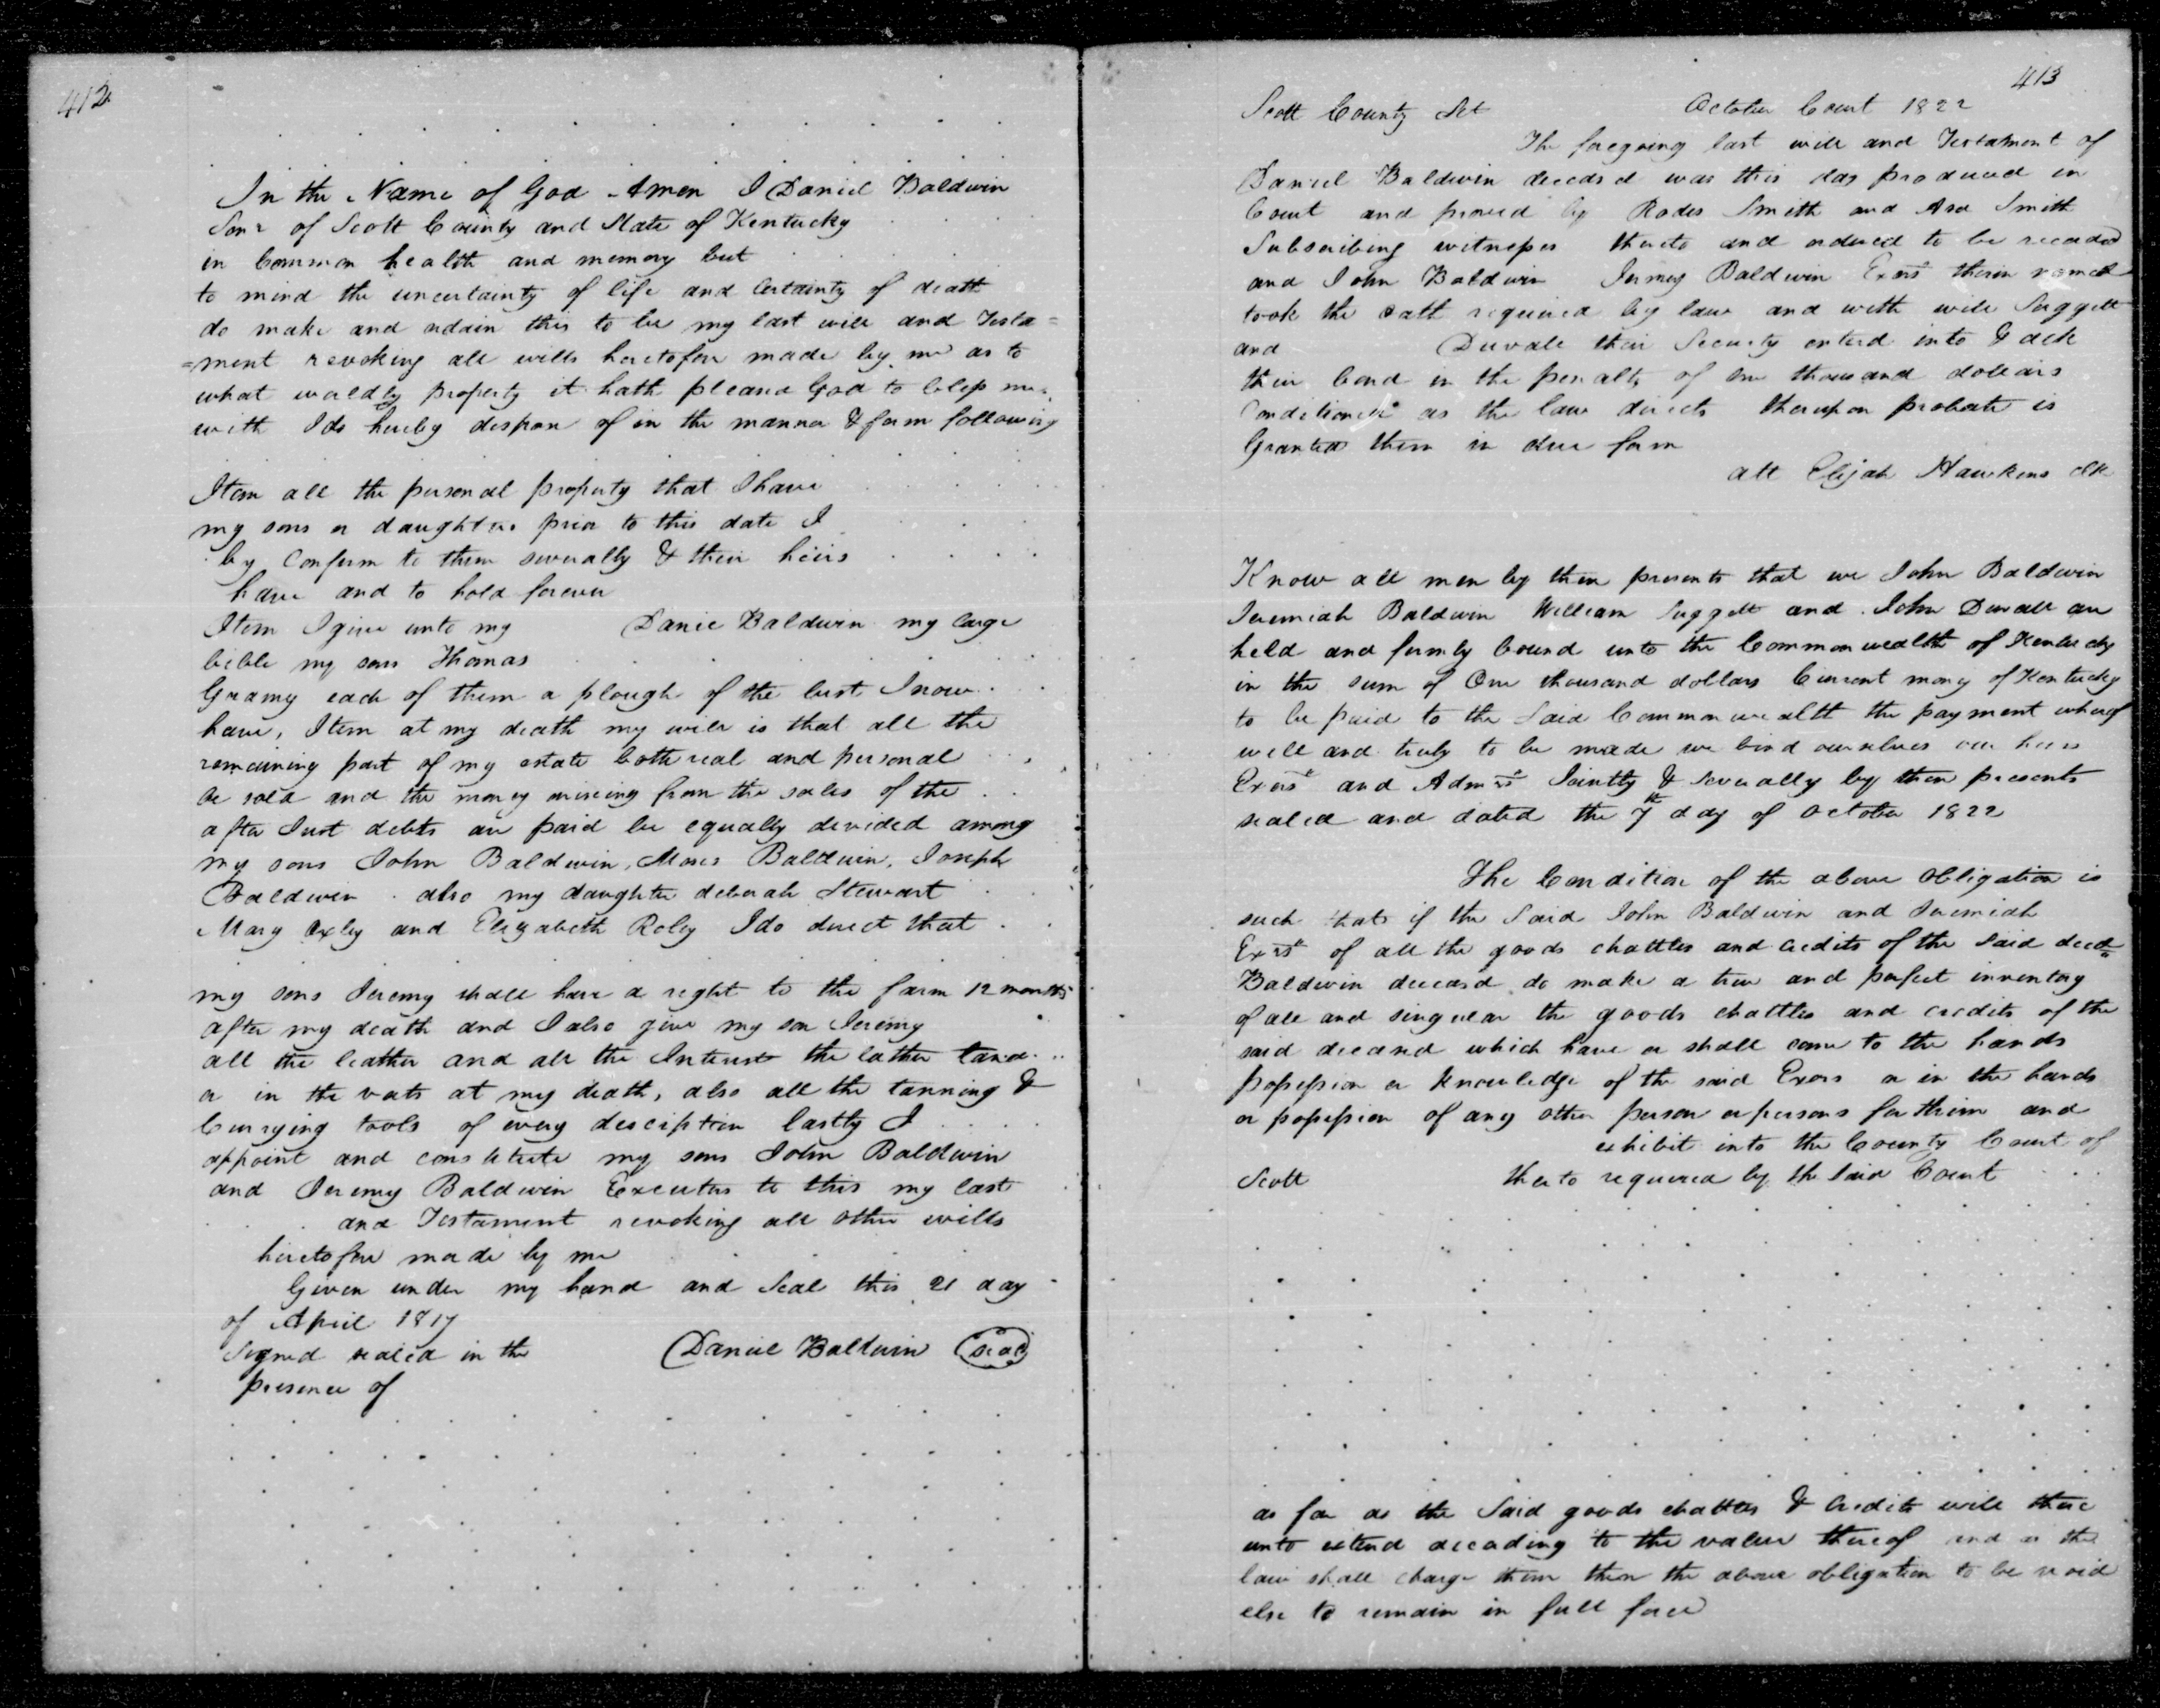 412
In the Name of God Amen I Daniel Baldwin
Senr of Scott County and State of Kentucky
in Common health and memory but
to mind the uncertainty of life and Certainty of death
do make and ordain this to be my last will and Testa=
=ment revoking all wills heretofore made by me as to
what worldly property it hath pleased God to bless me
with I do hereby dispose of in the manner & form following
Item all the personal property that I have
my sons or daughters prior to this date I
by Confirm to them severally & their heirs
have and to hold forever
Item I give unto my Daniel Baldwin my large
bible my sons Thomas
each of them a plough of the best I now
have, Item at my death my will is that all the
remaining part of my estate both real and personal
be sold and the money arising from the sales of the
after Just debts are paid be equally devided among
my sons John Baldwin, Moses Baldwin, Joseph
Baldwin also my daughter deborah Stewart
Mary Oxley and Elizabeth Roley I do direct that
my sons Jeremy shall have a right to the farm 12 months
after my death and I also give my son Jeremy
all the leather and all the Interest the lather tand
or in the vats at my death, also all the tanning &
Currying tools of every description lastly I
appoint and constitute my sons John Baldwin
and Jeremy Baldwin Executors to this my last
and Testament revoking all other wills
heretofore made by me
Given under my hand and Seal this 21 day
of April 1817
Signed sealed in the Daniel Baldwin (seal)
presence of
413
Scott County Sct October Court 1822
The foregoing last will and Testament of
Daniel Baldwin deceased was this day produced in
Court and proved by Rodes Smith and Asa Smith
Subscribing witnesses thereto and ordered to be recorded
and John Baldwin Jeremy Baldwin Exors therein named
took the oath required by law and with will Suggett
and Duvall their Security entered into & ack
their bond in the penalty of one thousand dollars
Conditioned as the law directs thereupon probate is
Granted them in due form
att Elijah Hawkens clk
Know all men by these presents that we John Baldwin
Jeremiah Baldwin William Suggett and John Duvall are
held and firmly bound unto the Commonwealth of Kentucky
in the sum of One thousand dollars Current money of Kentucky
to be paid to the Said Commonwealth the payment whereof
well and truly to be made we bind ourselves our heirs
Exors and Admrs Jointly & severally by these presents
sealed and dated the 7th day of October 1822
The Condition of the above obligation is
such that if the Said John Baldwin and Jeremiah
Exrs of all the goods chattles and credits of the Said decd
Baldwin deceasd do make a true and perfect inventory
of all and singular the goods chattles and credits of the
said deceased which have or shall come to the hands
possession or knowledge of the said Exors or in the hands
or possession of any other person or persons for thim and
exhibit into the County Court of
Scott thereto required by the said Court
as far as the Said goods chattles & Credits will there
unto extend according to the value thereof and as the
law shall charge them then the above obligation to be void
else to remain in full force